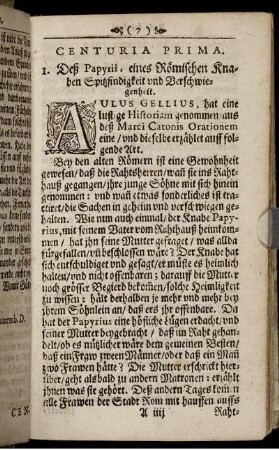 (7)
CENTURIA PRIMA.
1. Deß Papyrii, eines Römischen Kna-
ben Spitzfindigkeit vnd Verschwie-
genheit.
AULUS GELLIUS, hat eine
lustige Historiam genommen aus
deß Marci Catonis Orationem
eine / vnd dieselbe erzählet auff fol-
gende Art.
Bey den alten Römern ist eine Gewohnheit
gewesen / daß die Rahtsherren / wañ sie ins Raht-
hauß gegangen / ihre junge Söhne mit sich hinein
genommen: vnd wañ etwas sonderliches ist tra-
ctiret / die Sachen in geheim vnd verschwiegen ge-
halten. Wie nun auch einmal / der Knabe Papy-
rius, mit seinem Vater vom Rathauß heimkom-
men / hat jhn seine Mutter gefraget / was allda
fürgefallen / vñ beschlossen wäre? Der Knabe hat
sich entschuldiget vnd gesaget / er müste es heimlich
halten / vnd nicht offenbaren; darauff die Mutter
noch grösser Begierd bekomen / solche Heimligkeit
zu wissen: hält derhalben je mehr vnd mehr bey
jhrem Söhnlein an / daß ers jhr offenbare. Da
hat der Papyrius eine höfliche Lügen erdacht / vnd
seiner Mutter beygebracht / daß im Raht gehan-
delt / ob es nützlicher wäre dem gemeinen Besten /
daß ein Fraw zween Männer / oder daß ein Mañ
zwo Frawen hätte? Die Mutter erschrickt hier-
über / geht als bald zu andern Matronen: erzählt
jhnen was sie gehört. Deß andern Tages komen
alle Frawen der Stadt Rom mit hauffen auffs
A iiij Raht-